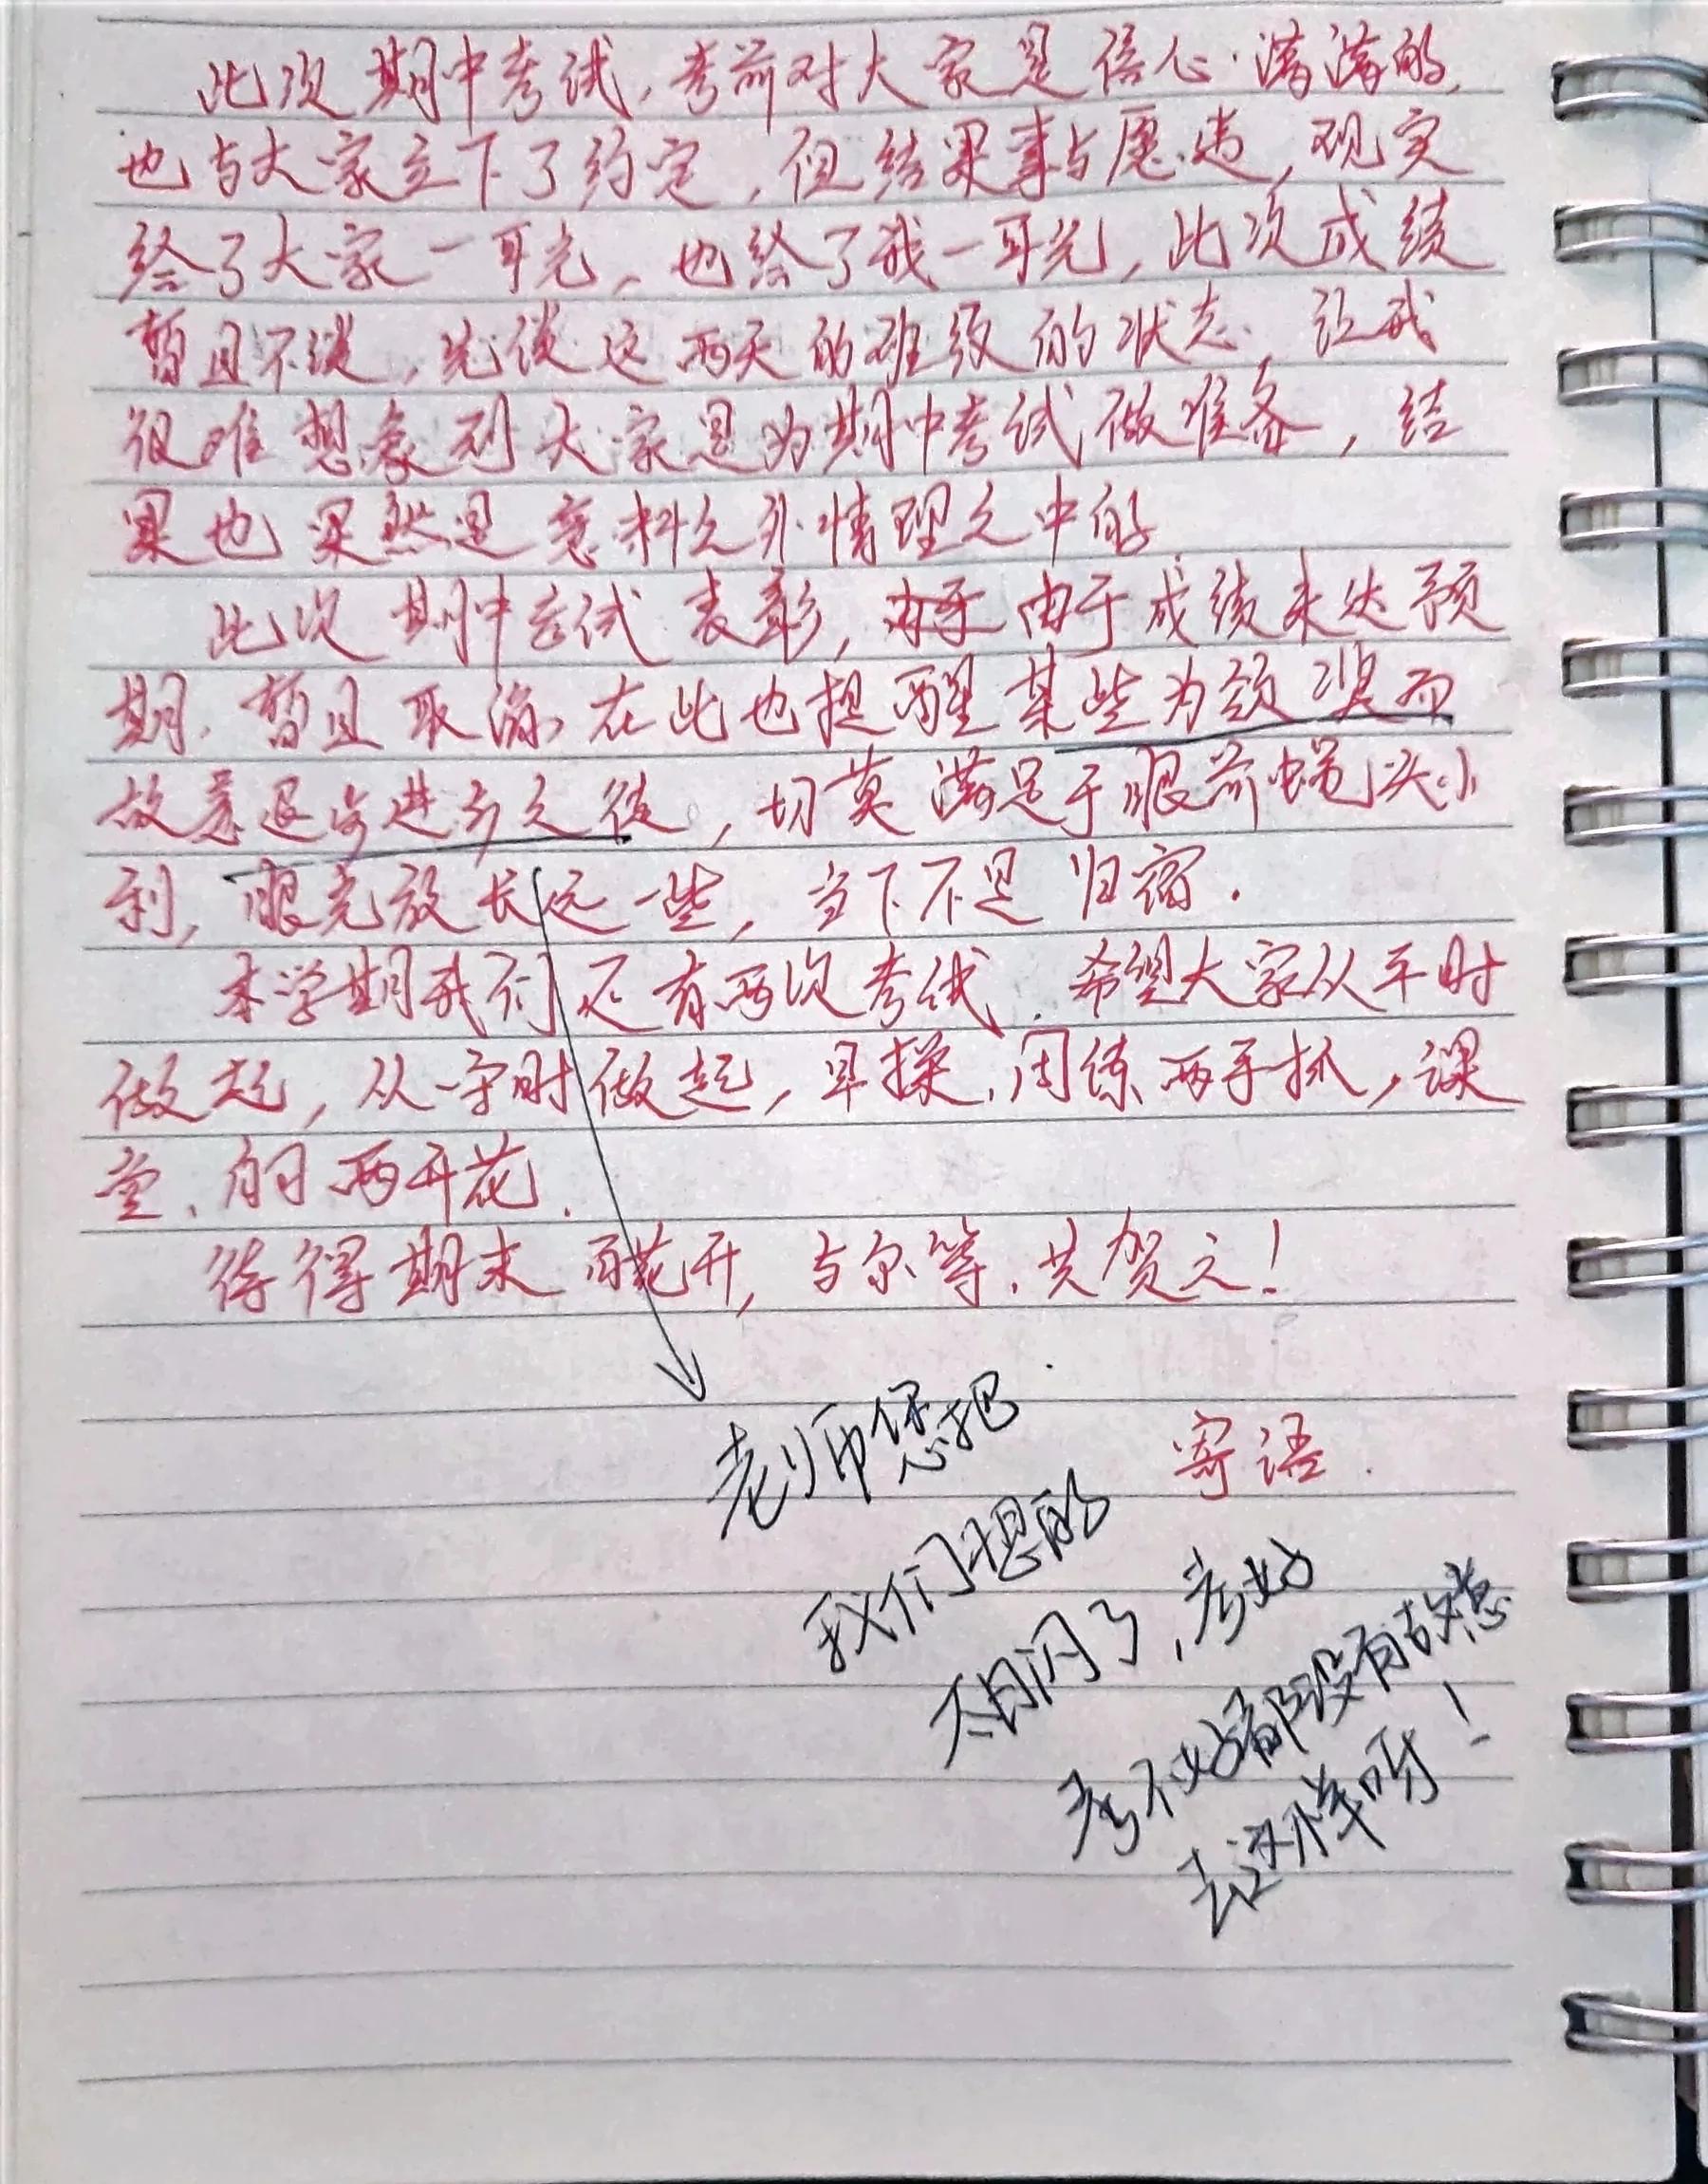 此次期中考试,考前对大家是信心满满的,
也与大家立下了约定,但结果事与愿违,现实
给了大家一耳光,也给了我一耳光,此次成绩
暂且不谈,先谈这两天的班级的状态,让我
很难想象到大家是为期中考试做准备,结
果也果然是意料之外情理之中的
此次期中考试表彰,由于成绩未达预
期,暂且取消,在此也提醒某些为领奖而
故意退步进步之徒,切莫满足于眼前蝇头小
利,眼光放长远一些,当下不是归宿.
本学期我们还有两次考试,希望大家从平时
做起,从守时做起,早操、周练两手抓,课
堂、自习两开花.
待得期末百花开,与尔等,共贺之!
老师您把
寄语.
我们想的
太阴了,考好
考不好都没有故意
去这样呀!